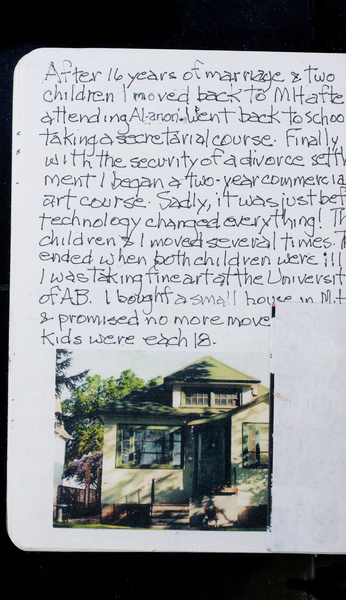 After 16 years of marriage & two
children I moved back to MH afte
attending Al-anon. Went back to schoo
taking a secretarial course. Finally
with the security of a divorce settl
ment I began a two-year commercia
art course. Sadly, it was just bef
technology changed everything! Th
children & I moved several times. T
ended when both children were ill
I was taking fine art at the Universit
of AB. I bought a small house in M.H
& promised no more move
Kids were each 18.